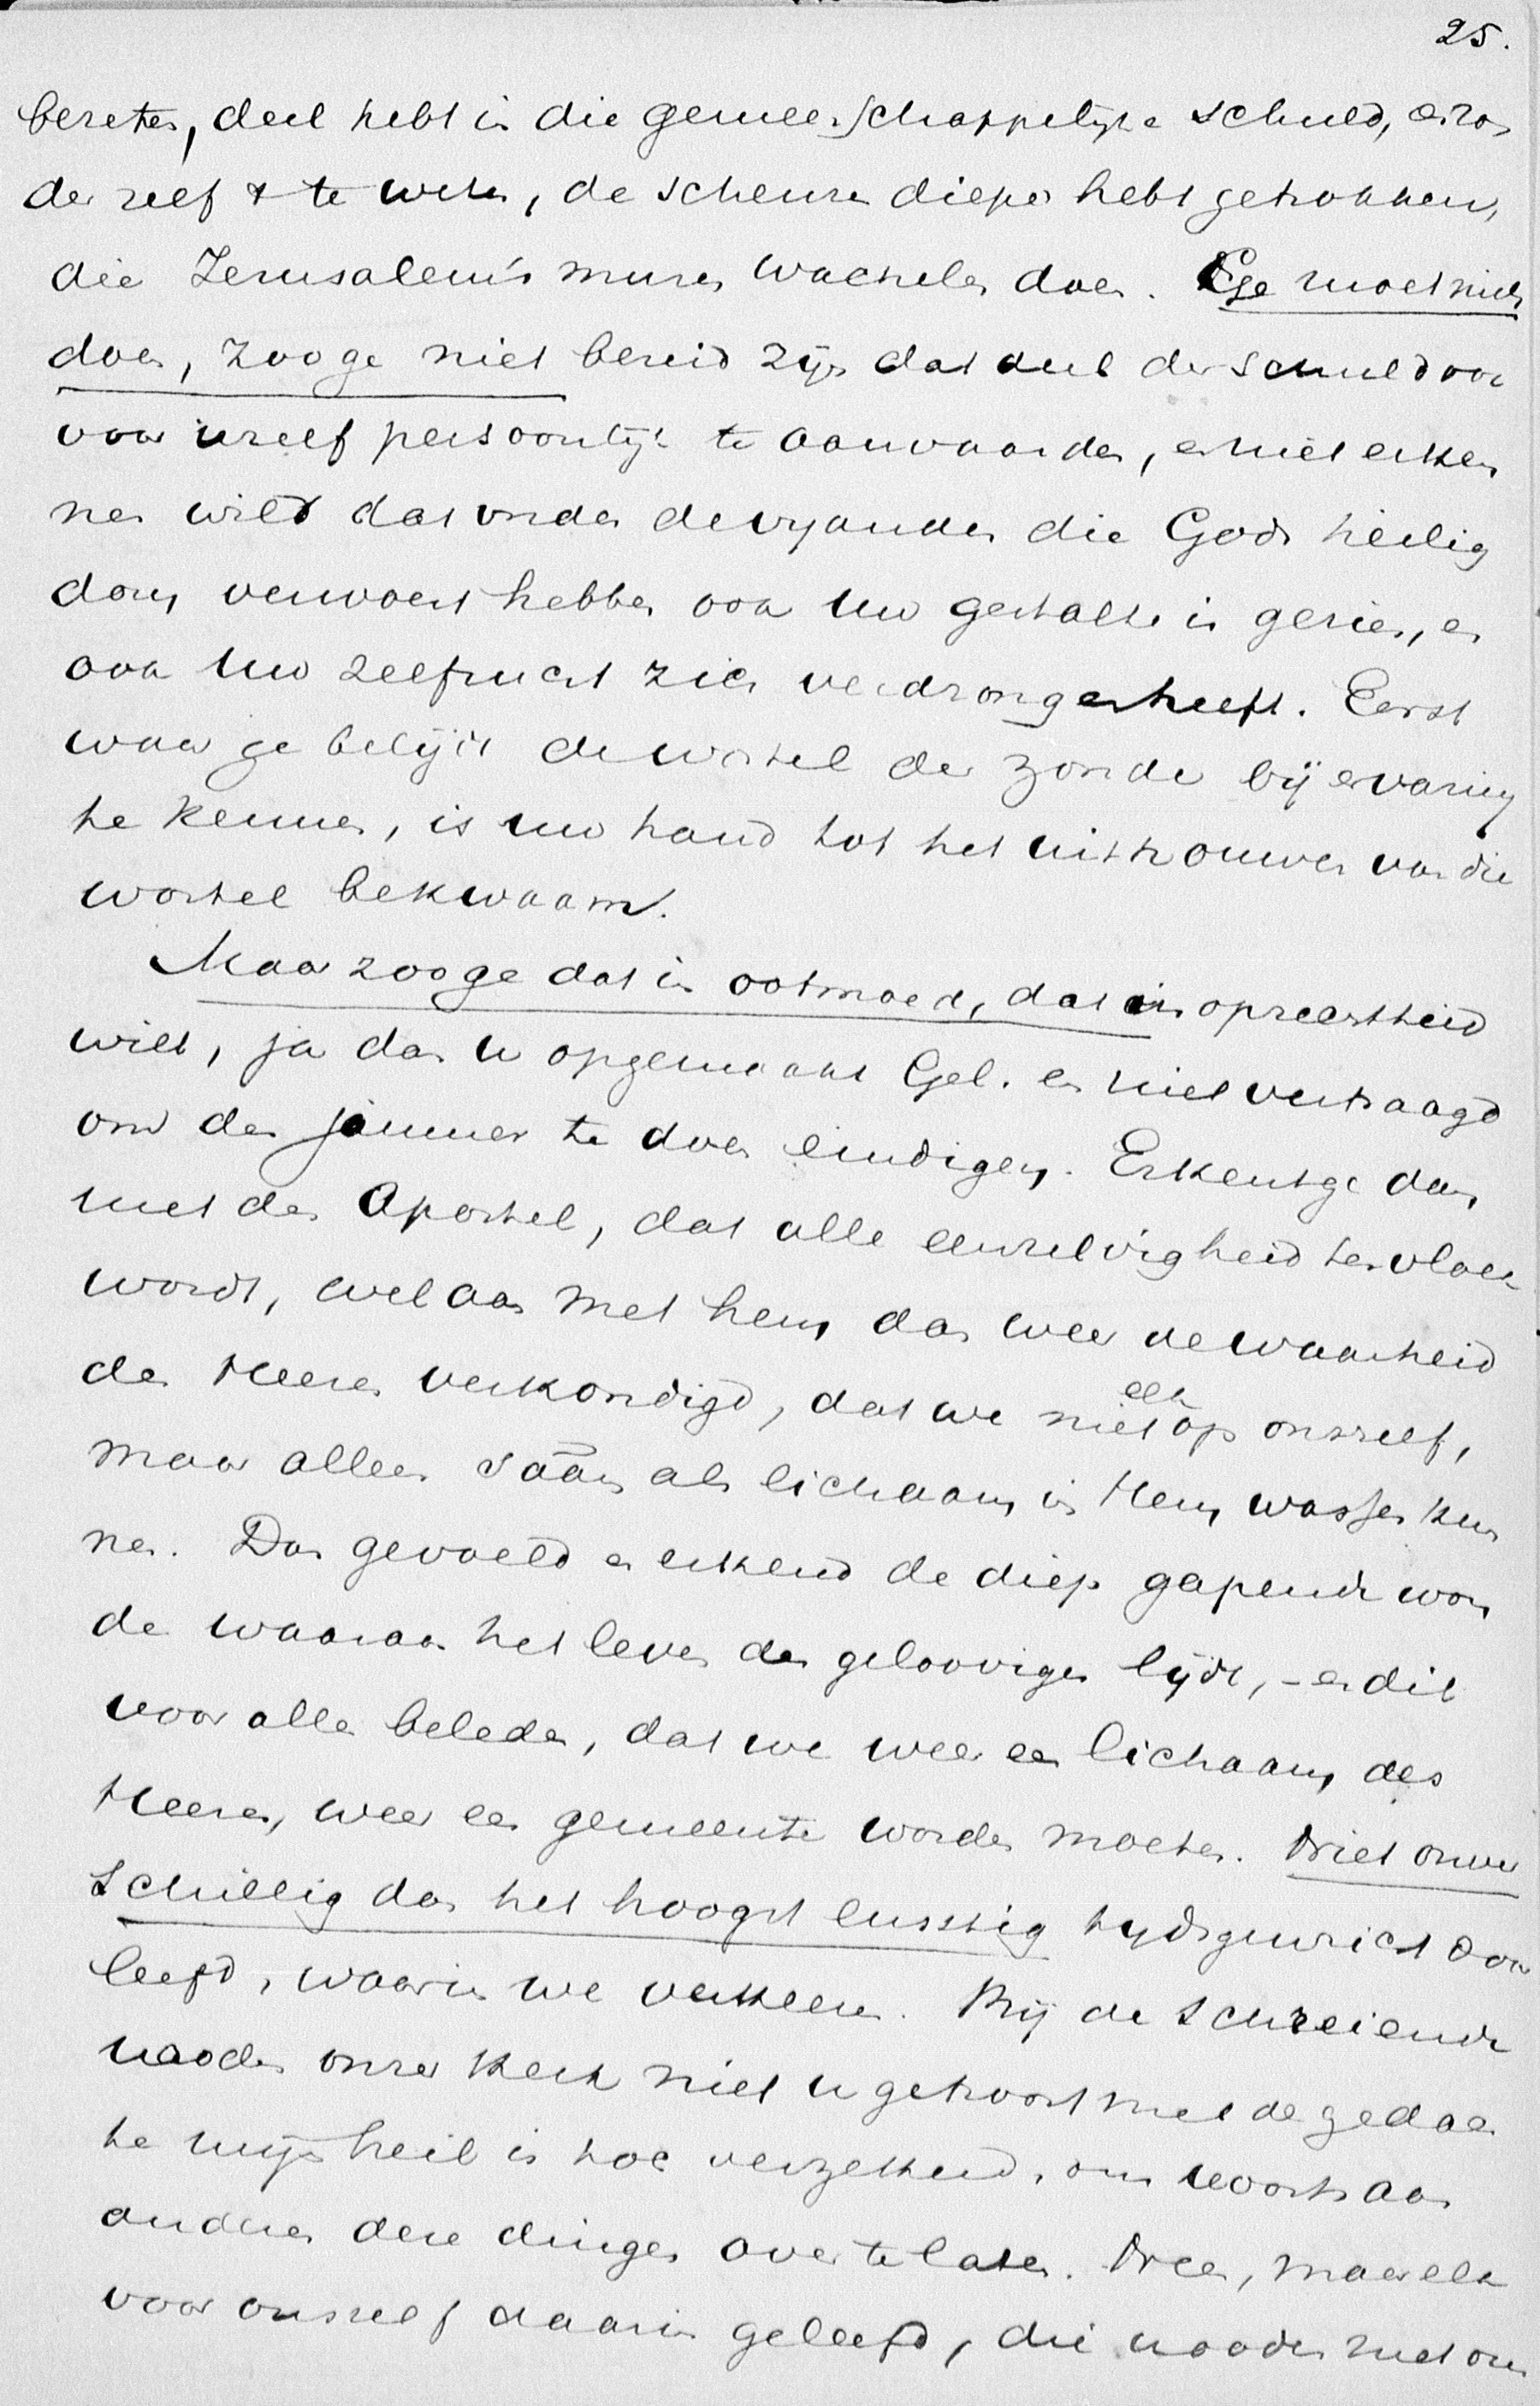 25.
beseten, deel hebt in die gemeenschappelijke schuld, en zon
der zelf te weten, de scheuren dieper hebt getrokken,
die Jerusalem's muren wachelen doen. Ge moet niets
doen, zoo ge niet bereid zijn dat deel der schuld ook
voor uzelf persoonlijk te aanvaarden, en niet erken
nen wilt dat onder de vyanden die Gods heilig
dom verwoest hebben ook uw gestalte is gezien, en
ook uw zelfzucht zich verdrongen heeft. Eerst
waar ge belijdt de wortel der zonde bij ervaring
te kennen, is uw hand tot het uithouwen van die
wortel bekwaam.
Maar zoo ge dat in ootmoed, dat in oprechtheid
wilt, ja dan u opgemaakt Gel. en niet vertraagd
om den jammer te doen eindigen. Erkent ge dan
met den Apostel, dat alle eenzelvigheid ten vloek
wordt, welaan met hem dan weer de waarheid
des Heeren verkondigd, dat we niet elk op onszelf,
maar alleen sáám als lichaam in Hem wassen kun
nen. Dan gevoeld en erkend de diep gapende won
de waaraan het leven der geloovigen lijdt, - en dit
voor allen beleden, dat we weer een lichaam des
Heeren, weer een gemeente worden moeten. Niet onver
schillig dan het hoogst ernstig tydsgewricht door
leefd, waarin we verkeeren. Bij de schreiende
nooden onzer Kerk niet u getroost met de gedach
te mijn heil is toch verzekerd, om voorts aan
anderen deze dingen over te laten. Neen, maar elk
voor onszelf daarin geleefd, die nooden met ons